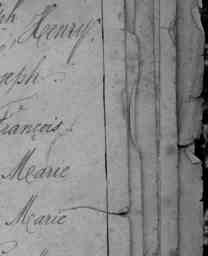 ph
Henry.
seph.
François.
Marie
Marie